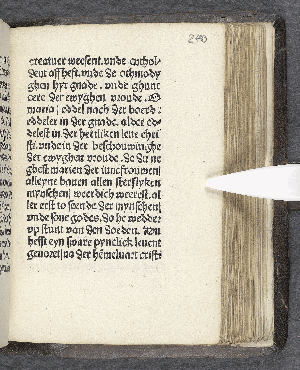 240
creatuer weesent. vnde enthol-
dent aff heft. vnde de othmody
ghen hyr gnade. vnde ghunt
cere der ewyghen vroude. O
maria eddel nach der boerd :
eddeler in der gnade. alder ed-
delest in der heerliken leue chri
sti. vnde in der beschouwinghe
der ewyghen vroude. Se du ne
ghest marien der iuncfrouwen
alleyne bauen allen sterflyken
mynschen weerdich weerest. al
ler erst to seende der mynschen
vnde sone godes. do he wedder
vp stunt van den doeden. Nu
hefft eyn sware pynelick leuent
ghenoret na der hemeluart cristi